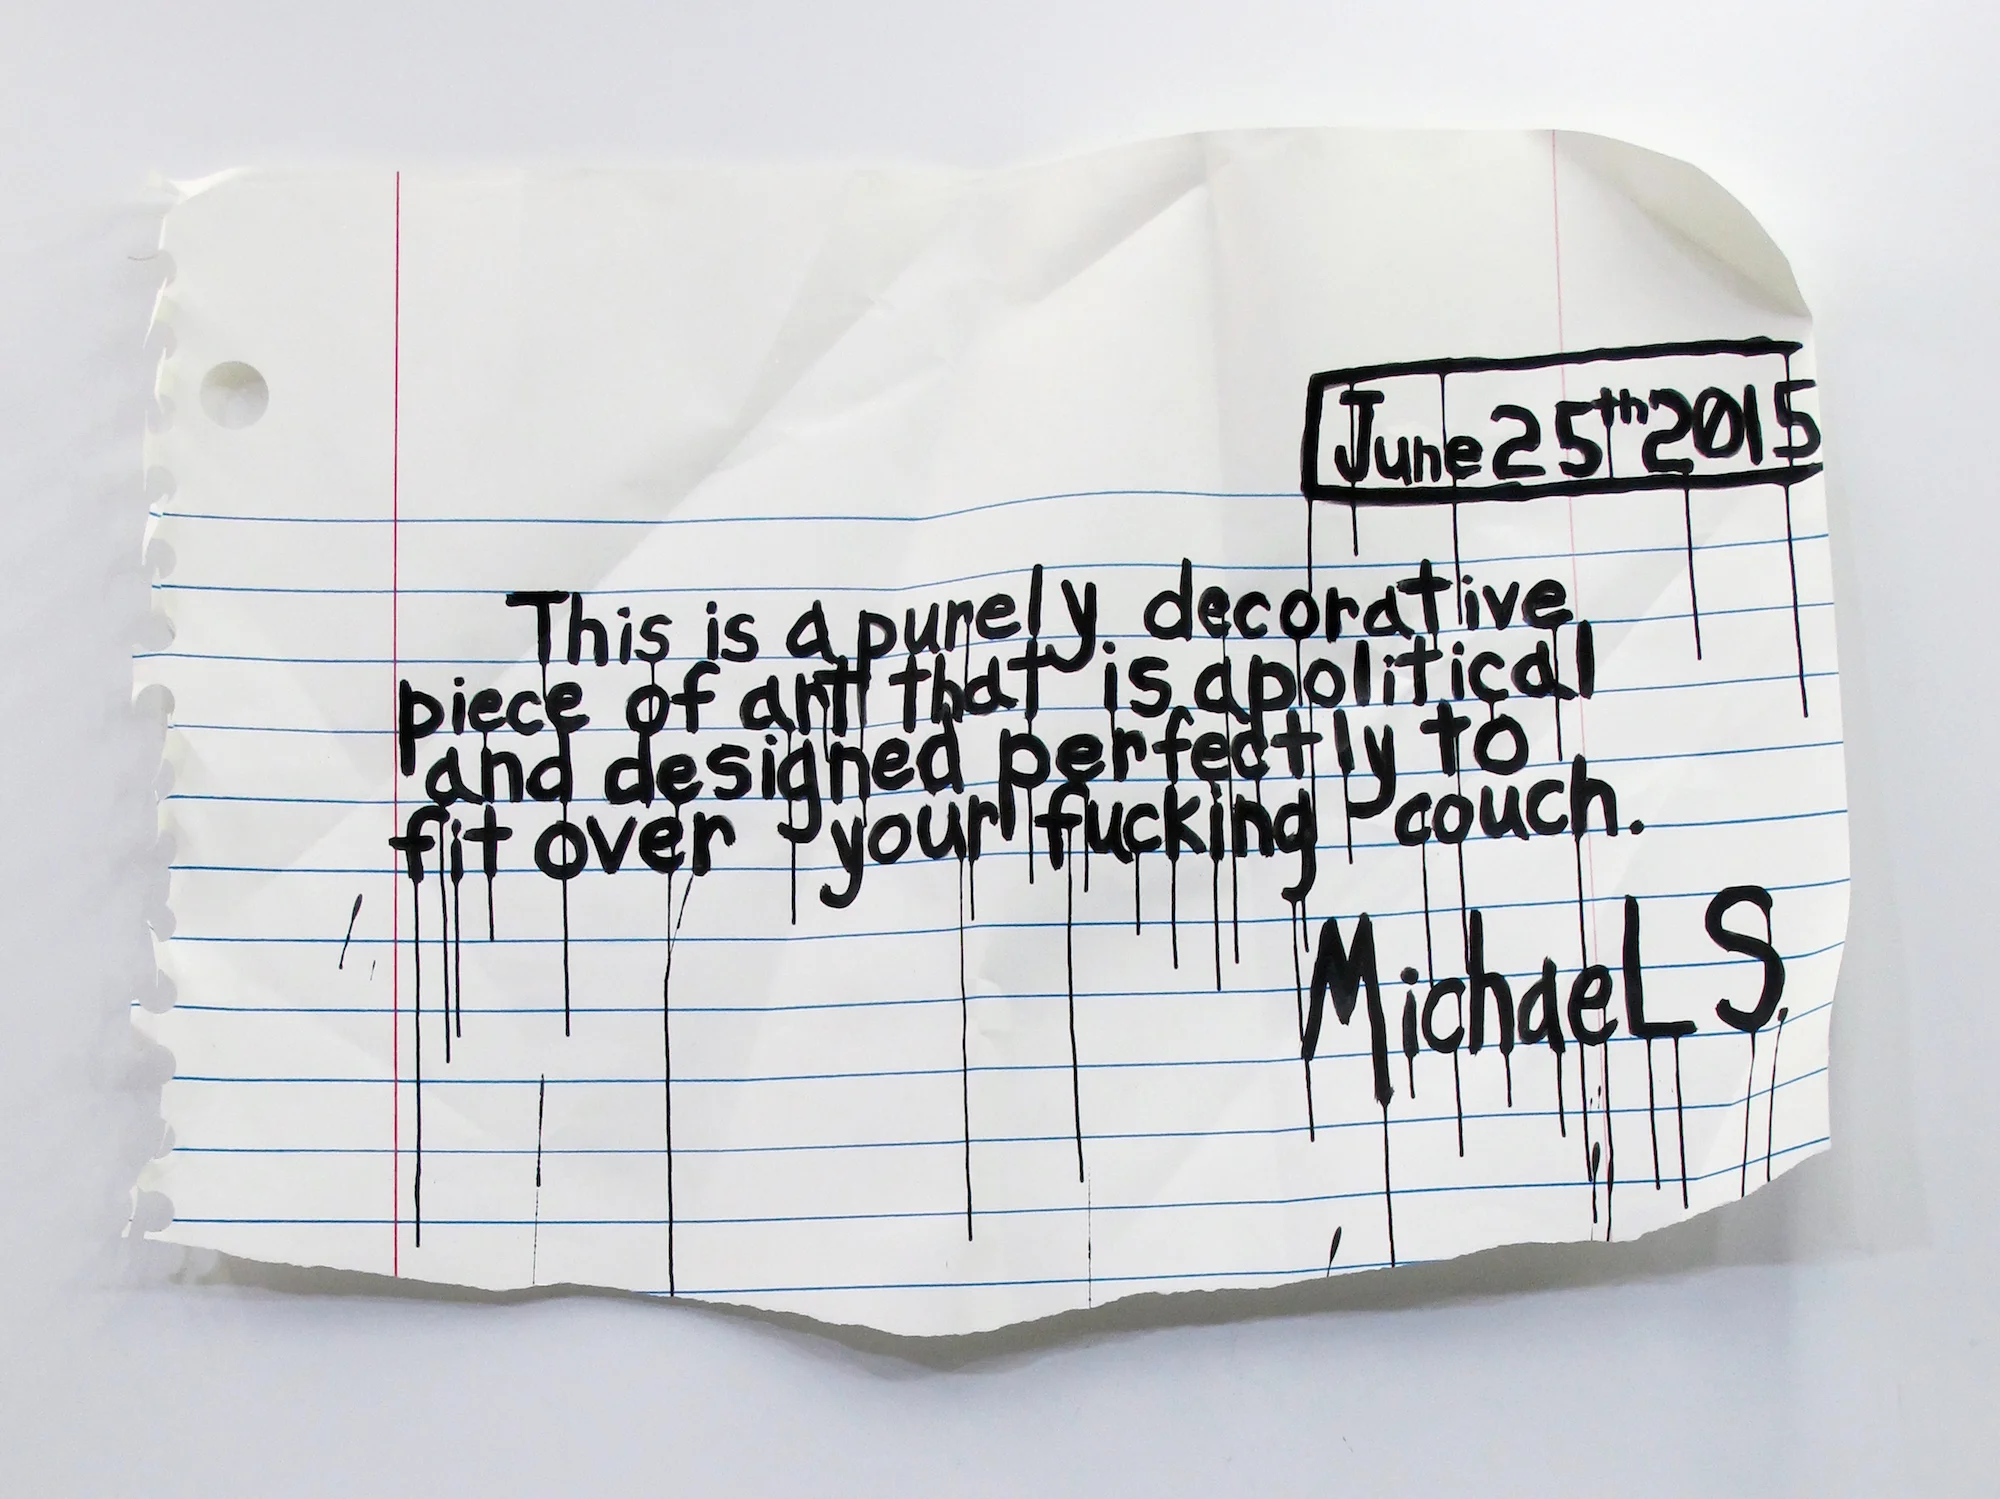 June 25th 2015
This is a purely decorative
piece of art that is apolitical
and designed perfectly to
fit over your fucking couch.
MichaeL S.